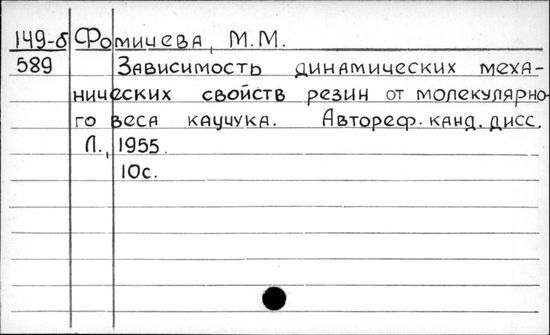 149-б Фомичева, М.М.
589 Зависимость динамических меха-
нических свойств резин от молекулярно-
го веса каучука. Автореф. канд. дисс.
Л., 1955.
10с.